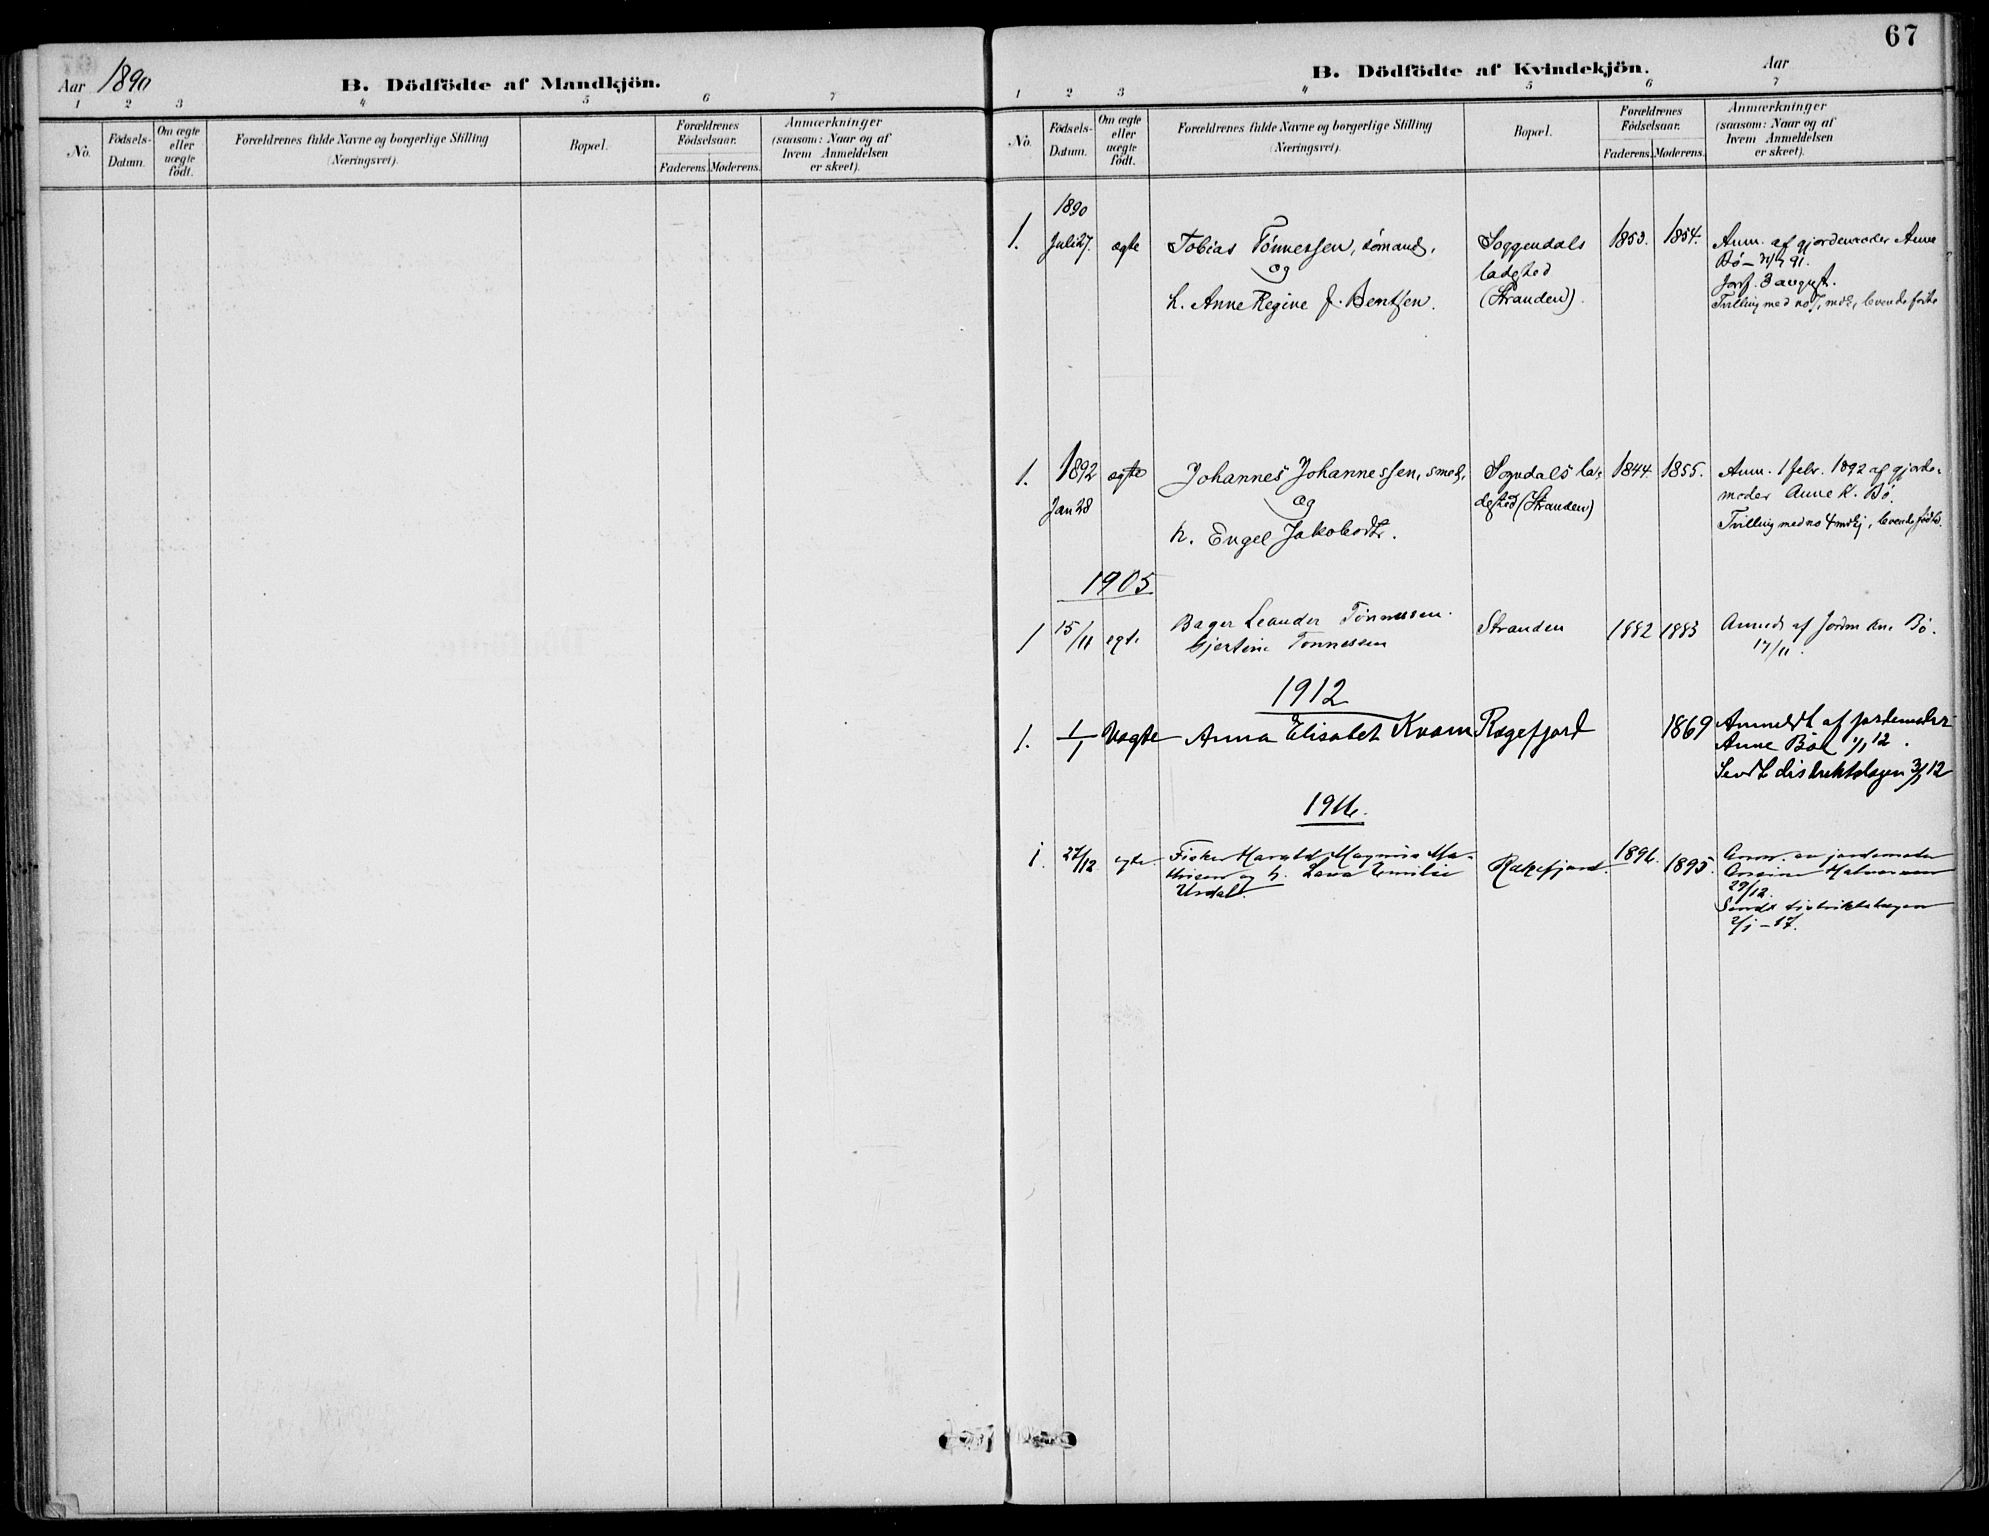 Aar 1890
B. Dödfödte af Mandkjön.
1 2 3 4 5 6 7
No.
Födsels-Datum.
Om ægte eller uægte födt.
Forældrenes fulde Navne og borgerlige Stilling (Næringsvei).
Bopæl.
Forældrenes Födselsaar.
Faderens. Moderens.
Anmærkninger (saasom: Naar og af hvem Anmeldelsen er skeet).
67
B. Dödfödte af Kvindekjön.
Aar
1 2 3 4 5 6 7
No.
Födsels-Datum.
Om ægte eller uægte födt.
Forældrenes fulde Navne og borgerlige Stilling (Næringsvei).
Bopæl.
Forældrenes Födselsaar.
Faderens. Moderens.
Anmærkninger (saasom: Naar og af hvem Anmeldelsen er skeet).
1890
1. Juli 27. ægte Tobias Tönnessen, sömand, Soggendals 1853. 1854. Anm. af gjordemoder Anne
og ladested Bö
h. Anne Regine f. Bentsen. (Stranden). Jordf. 3 august.
Tvilling med no 7, mdk, levende födte
1. 1892 ægte Johannes Johannessen, smed, Sogndals la- 1844. 1855. Anm. 1 febr. 1892 af gjorde-
Jan 28 og dested (Stranden) moder Anne K. Bö.
h. Engel Jakobsdtr. Tvilling med no 4 mdkj, levende födte.
1905
1 15/11 egte Bager Leander Tönnessen Stranden 1882 1883 Anmeldt af Jordm Ane Bö.
Gjertine Tonnessen 17/11.
1912
1. 1/1 Uægte Anna Elisabet Kvam Rægefjord 1869 Anmeldt af jordemoder
Anne Böe 1/1 12.
Sendt distriktslægen 3/1 12
1916.
1. 27/12 egte Fisker Harald Magnus Ma- Rekefjord. 1896. 1895. Anm. av jordemoder
thisen og h. Lava Emilie
Urdal. 29/12.
Sendt distriktslægen
2/1 - 17.